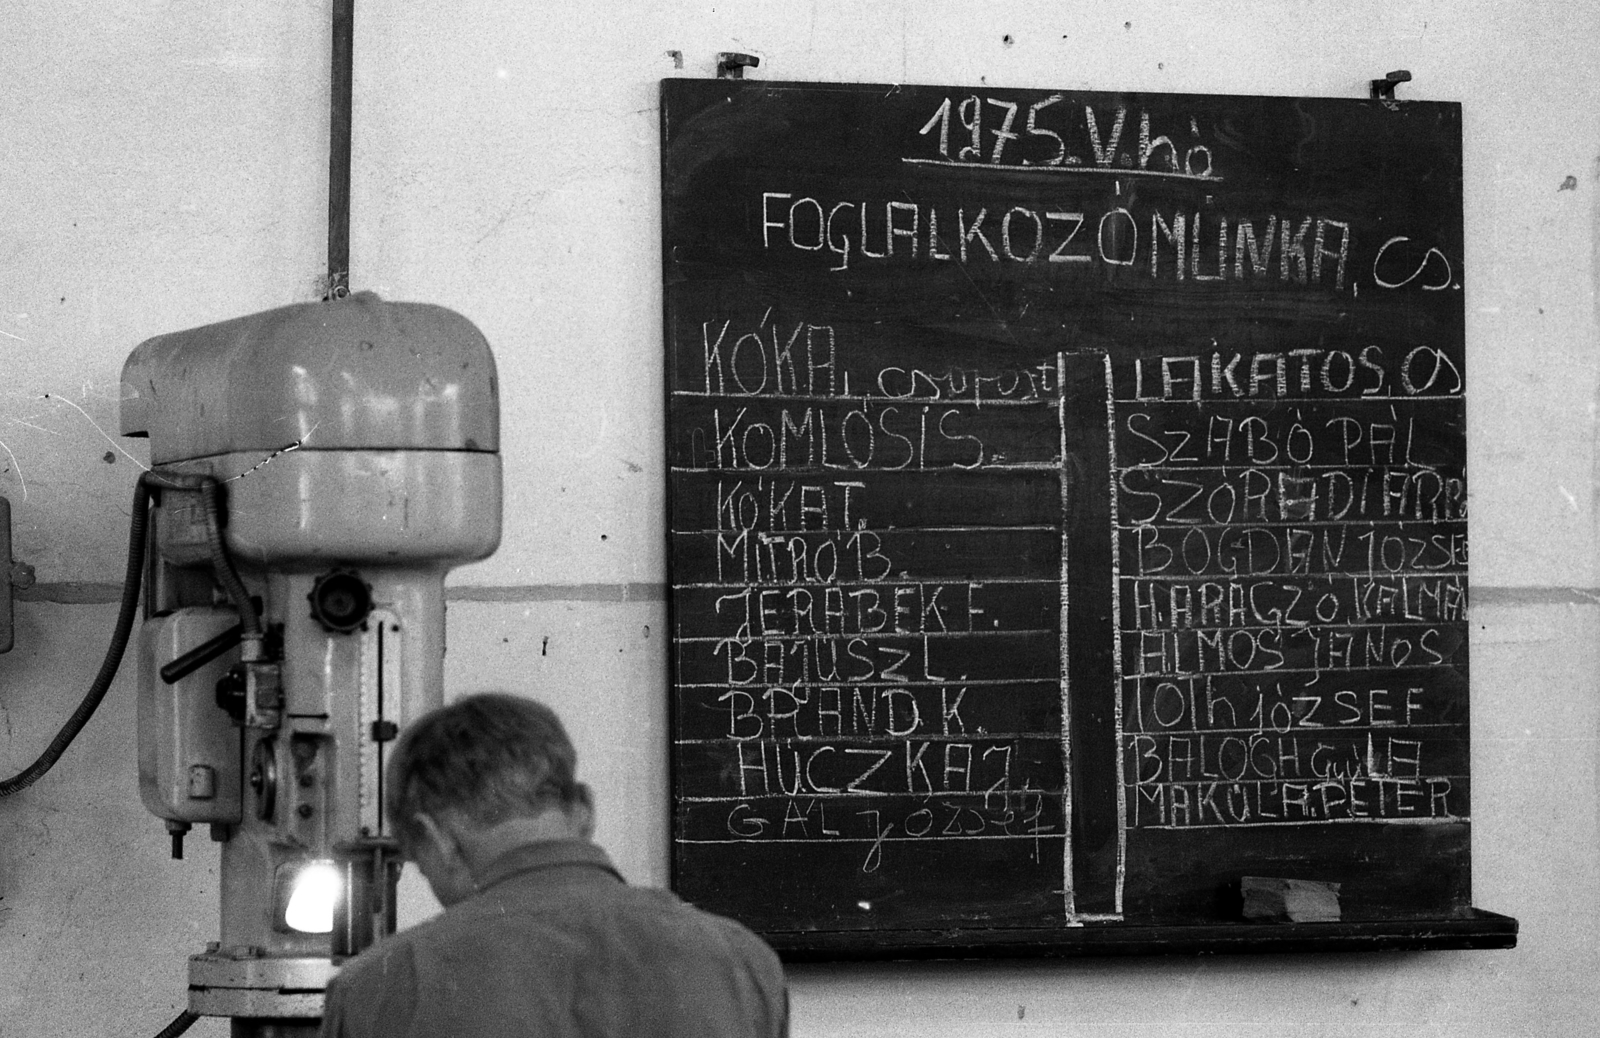 1975. V. hó
FOGLALKOZÓ MUNKA, CS.
KÓKA, csoport
KOMLÓSI S.
KÓKA T.
MITRÓ B.
JERABEK F.
BAJUSZ L.
BRAND K.
HUCZKA J.
GÁL József
LAKATOS, CS
SZABÓ PÁL
SZÓRÁDI ÁRP
BOGDÁN JÓZSEF
HARAGZÓ KÁLMÁN
ÁLMOS JÁNOS
Tóth józSEF
BALOGH GyuLA
MAKULA PÉTER